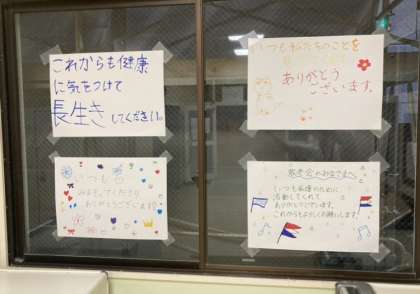 これからも健康
に気をつけて
長生きしてください。
いつも私たちのことを
ありがとう
ございます。
いつも
ありがとうございます!
みなさまへ
いつも
のために
活動してくれて
ありがとうございます。
これからもよろしくお願いします。